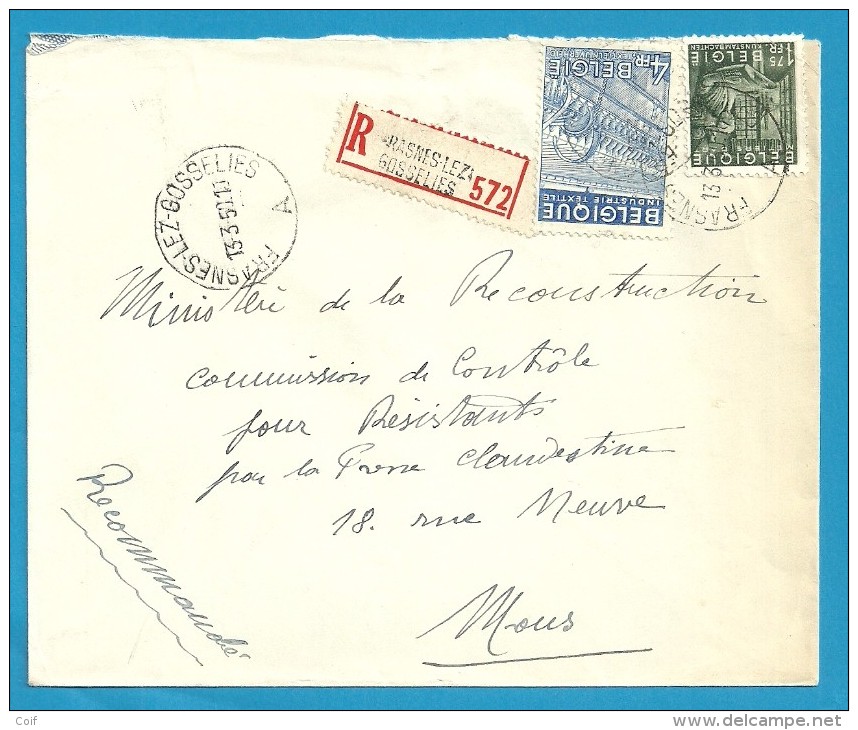 BELGIQUE
INDUSTRIE TEXTILE
BELGIË
4 FR
BELGIQUE
BELGIE
1 75 FR.
KUNSTAMBACHTEN
R
FRASNES-LEZ-
GOSSELIES
572
FRASNES-LEZ-GOSSELIES
A
FRASNES
13-3
Ministère de la Reconstruction
Commission de Contrôle
pour Résistants
par la Presse Clandestine
18. rue Neuve
Mons
Recommandé
Coif
www.delcampe.net